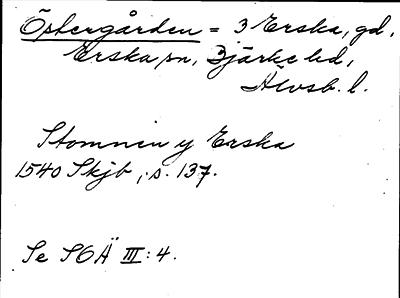 Östergården = 3 Erska, gd,
Erska sn, Bjärke hd,
Älvsb. l.
Stomnen y Erska
1540 Skjb, s. 137.
Se SOÄ III: 4.